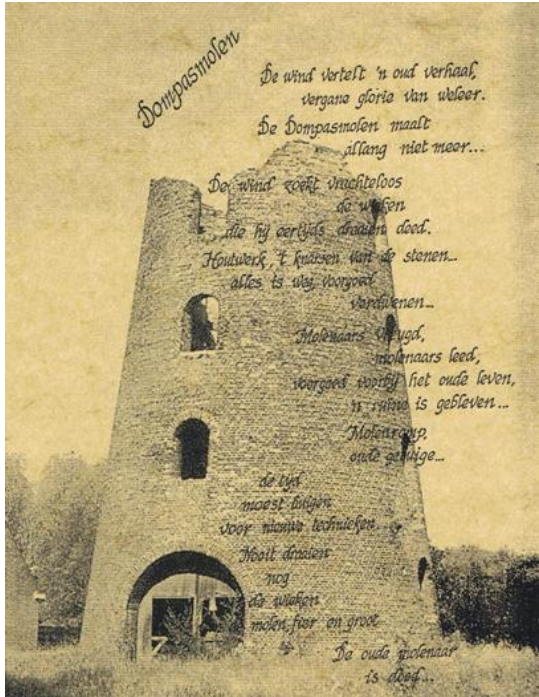 Dompasmolen
De wind vertelt 'n oud verhaal,
vergane glorie van weleer.
De Dompasmolen maalt
allang niet meer...
De wind zoekt vruchteloos
de wieken
die hij eertijds draaien deed.
Houtwerk, 't knarsen van de stenen...
alles is weg, voorgoed
verdwenen...
Molenaars vreugd,
molenaars leed,
voorgoed voorbij het oude leven,
'n ruïne is gebleven...
Molenromp,
oude getuige...
de tijd
moest buigen
voor nieuwe technieken...
Nooit draaien
nog
de wieken
molen, fier en groot
De oude molenaar
is dood...